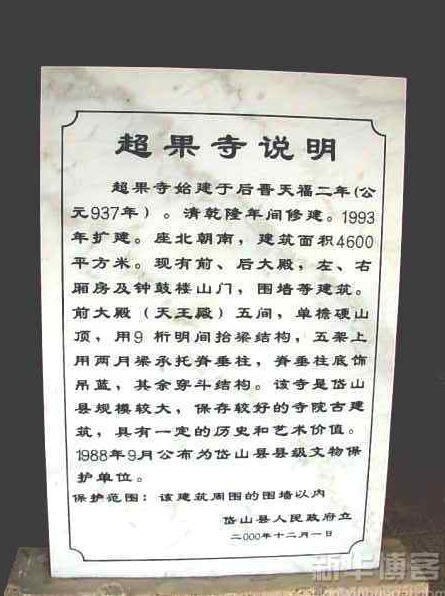 超果寺说明
超果寺始建于后晋天福二年(公
元937年)。清乾隆年间修建。1993
年扩建。座北朝南，建筑面积4600
平方米。现有前、后大殿，左、右
厢房及钟鼓楼山门，围墙等建筑。
前大殿（天王殿）五间，单檐硬山
顶，用9桁明间抬梁结构，五架上
用两月梁承托脊垂柱，脊垂柱底饰
吊蓝，其余穿斗结构。该寺是岱山
县规模较大，保存较好的寺院古建
筑，具有一定的历史和艺术价值。
1988年9月公布为岱山县县级文物保
护单位。
保护范围：该建筑周围的围墙以内
岱山县人民政府立
二000年十二月一日
新华博客